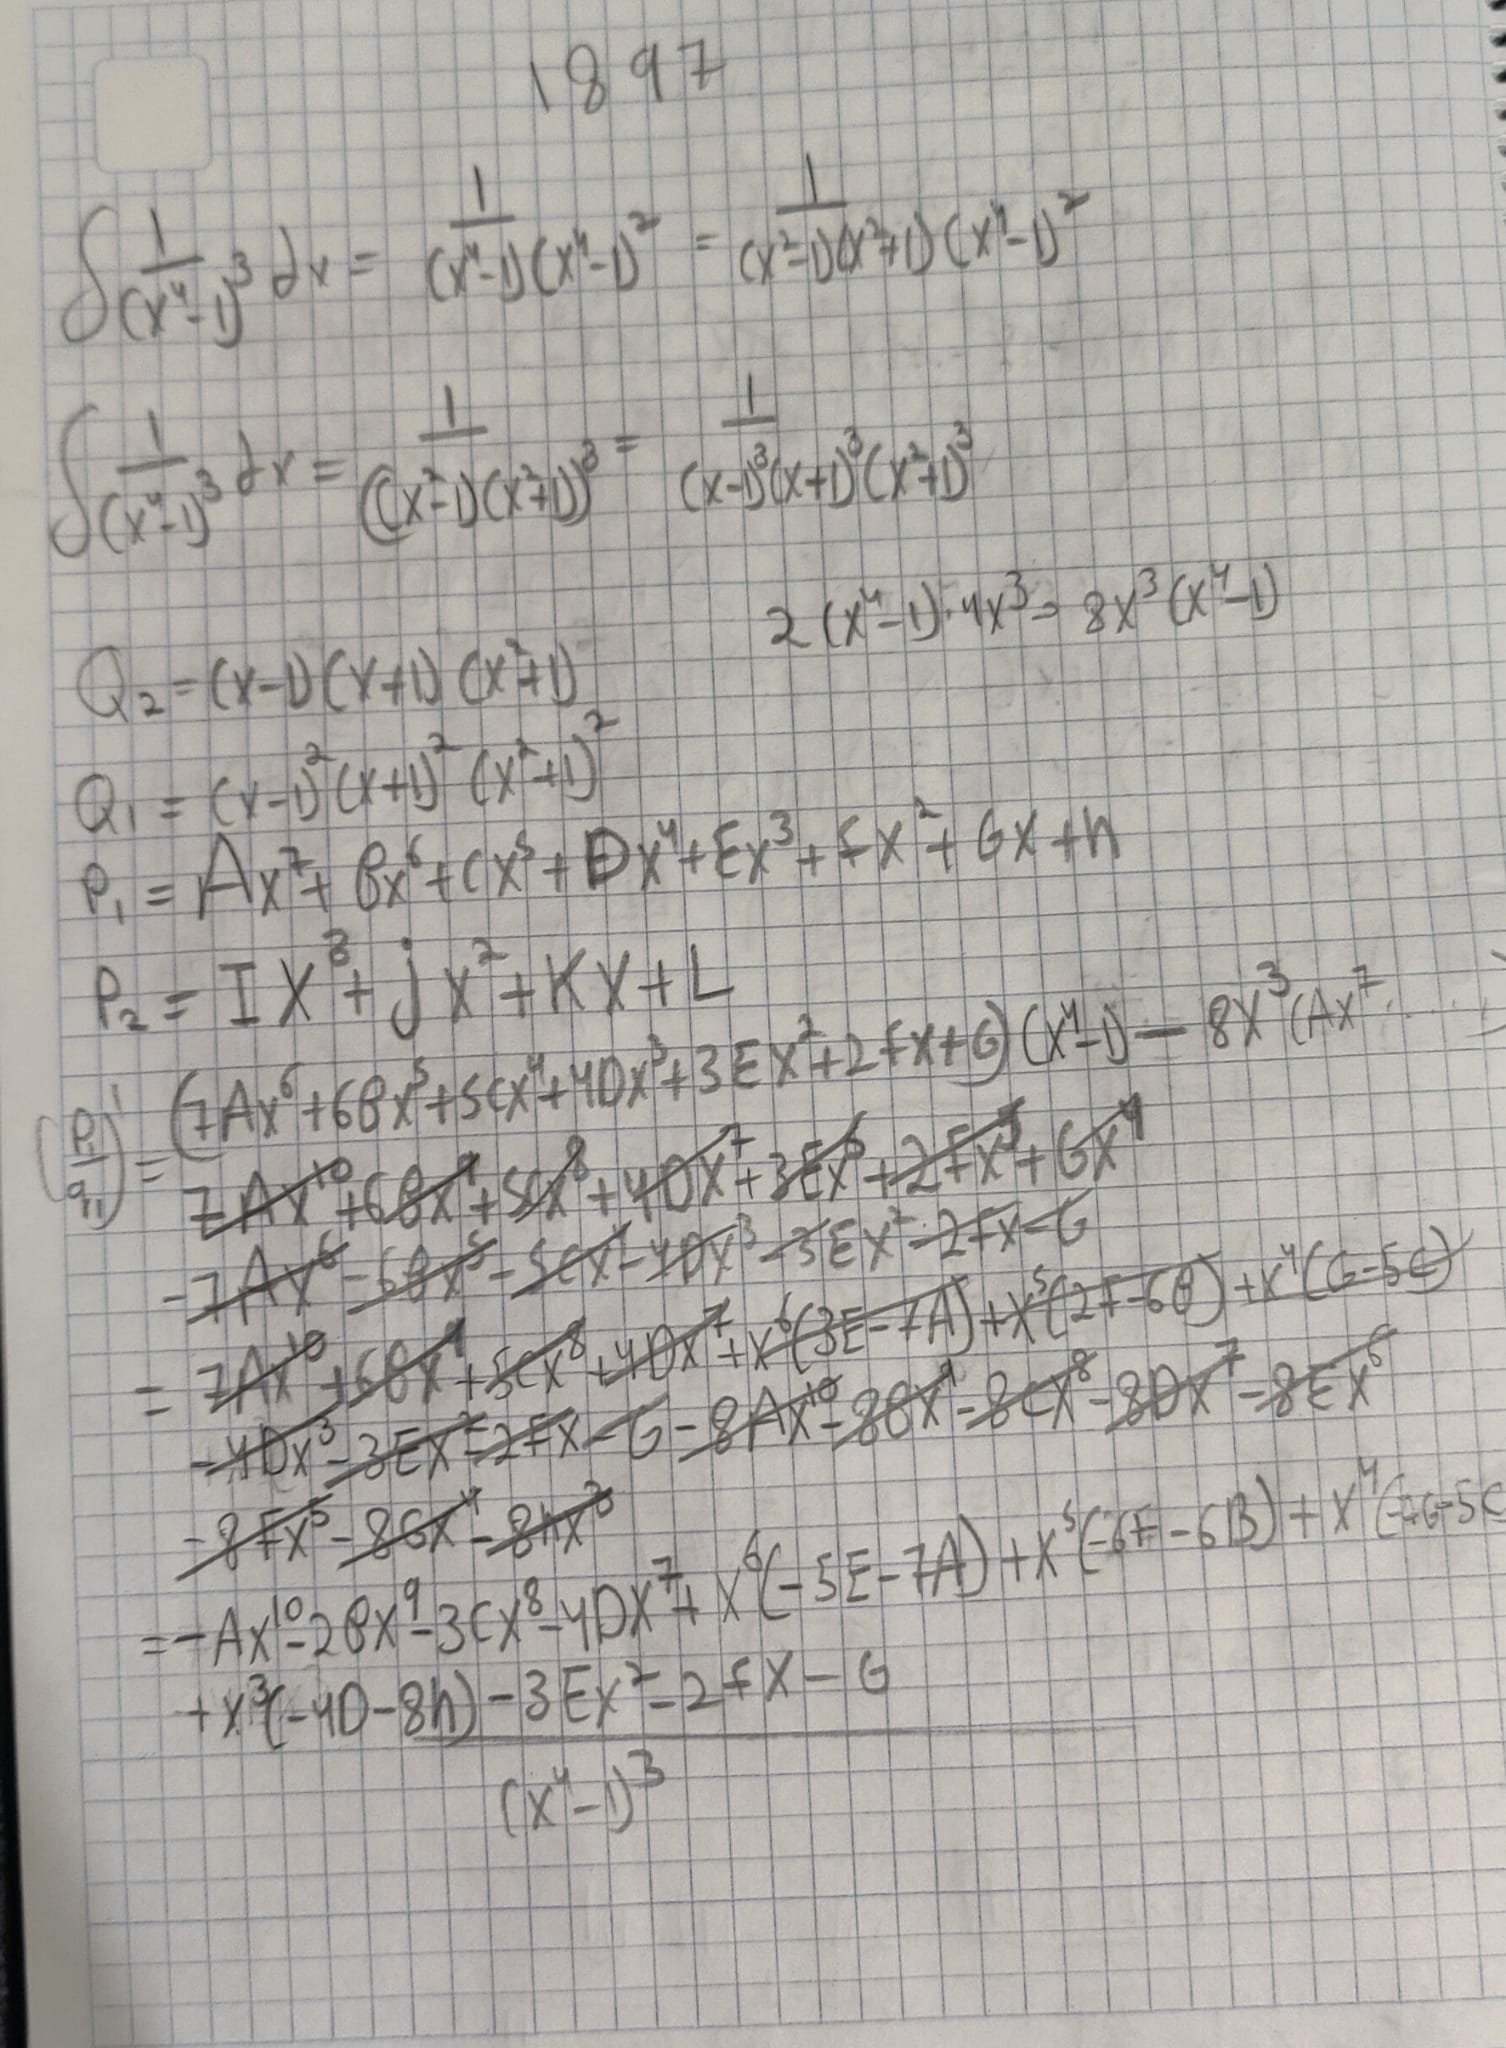 1897
∫ 1/(x⁴-1)³ dx = 1/((x⁴-1)(x⁴-1)²) = 1/((x²-1)(x²+1)(x⁴-1)²)
∫ 1/(x⁴-1)³ dx = 1/((x²-1)(x²+1))³ = 1/((x-1)³(x+1)³(x²+1)³)
2(x⁴-1)·4x³ = 8x³(x⁴-1)
Q₂ = (x-1)(x+1)(x²+1)
Q₁ = (x-1)²(x+1)²(x²+1)²
P₁ = Ax⁷+Bx⁶+Cx⁵+Dx⁴+Ex³+Fx²+Gx+h
P₂ = Ix³+jx²+Kx+L
(P₁/q₁)' = (7Ax⁶+6Bx⁵+5Cx⁴+4Dx³+3Ex²+2Fx+G)(x⁴-1) - 8x³(Ax⁷.....)
7Ax¹⁰+6Bx⁹+5Cx⁸+4Dx⁷+3Ex⁶+2Fx⁵+Gx⁴
-7Ax⁶-6Bx⁵-5Cx⁴-4Dx³-3Ex²-2Fx-G
= 7Ax¹⁰+6Bx⁹+5Cx⁸+4Dx⁷+x⁶(3E-7A)+x⁵(2F-6B)+x⁴(G-5C)
-4Dx³-3Ex²-2Fx-G-8Ax¹⁰-8Bx⁹-8Cx⁸-8Dx⁷-8Ex⁶
-8Fx⁵-8Gx⁴-8hx³
= -Ax¹⁰-2Bx⁹-3Cx⁸-4Dx⁷+x⁶(-5E-7A)+x⁵(-6F-6B)+x⁴(-7G-5C
+x³(-4D-8h)-3Ex²-2Fx-G
(x⁴-1)³